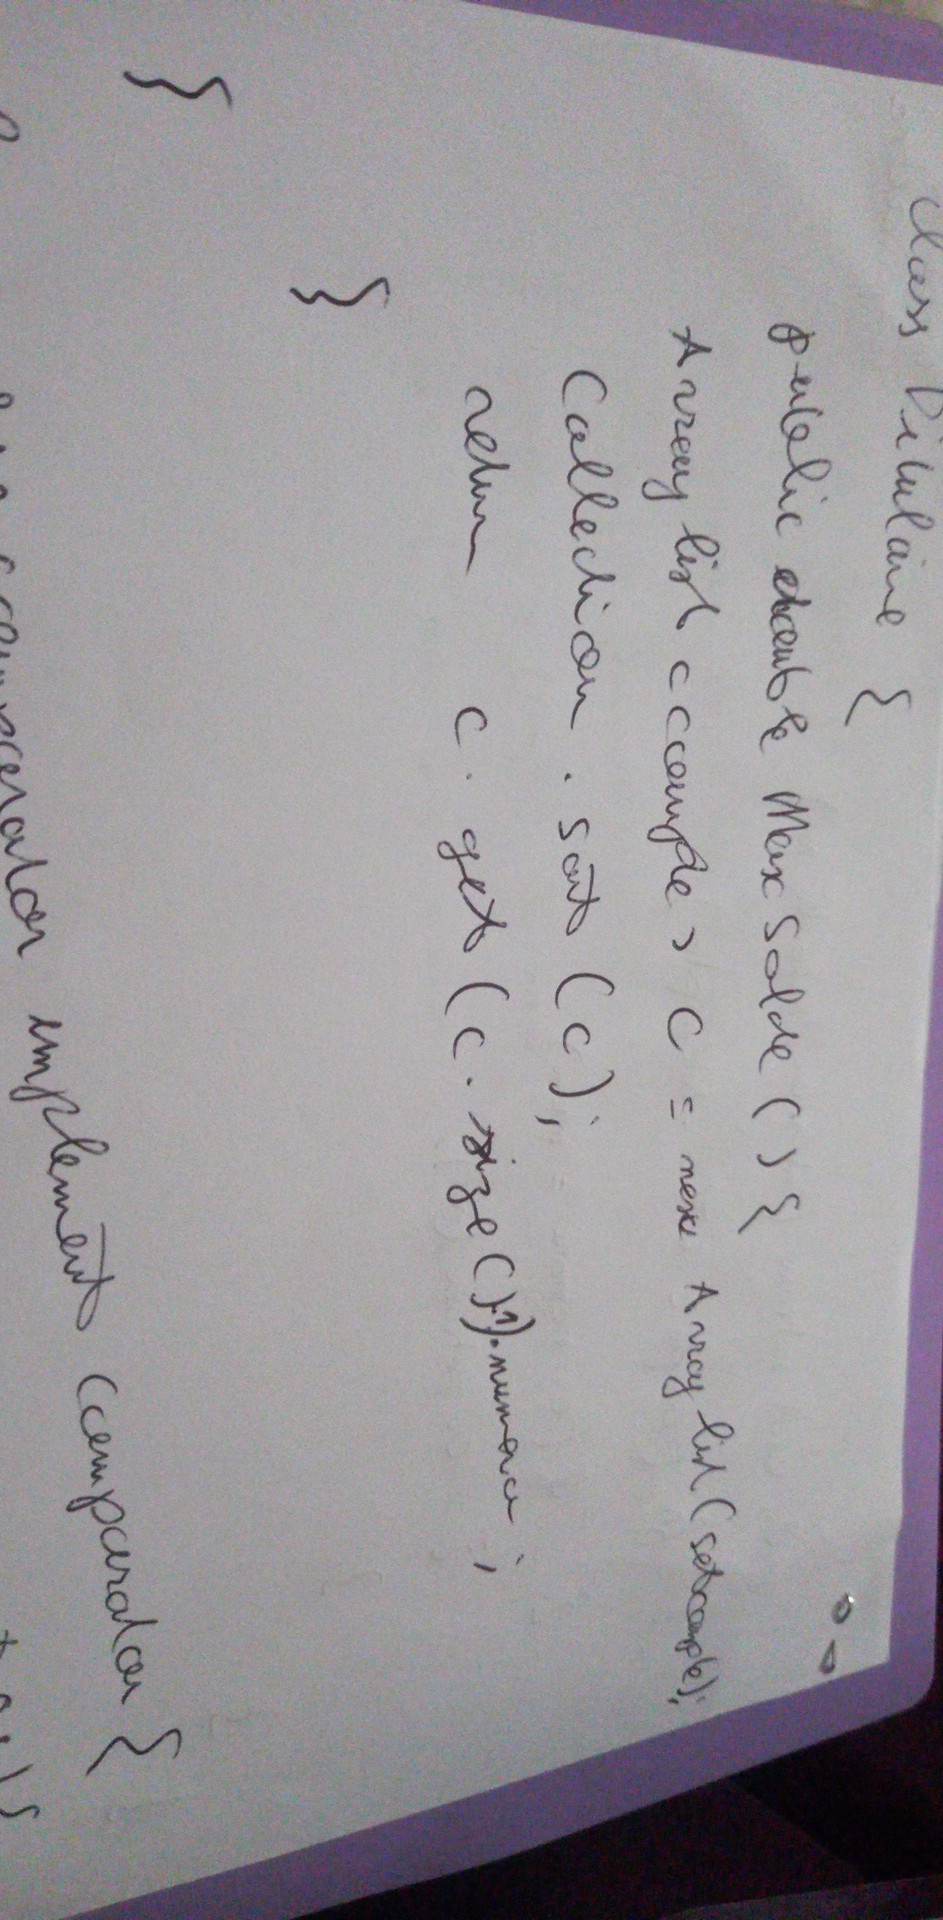 class Titulaire {
public double MaxSolde () {
Array list < compte > C = new Array list (setcompte);
Collection . sort (c);
return c. get (c. size()-1).numero ;
}
}
comparator implement Comparator {